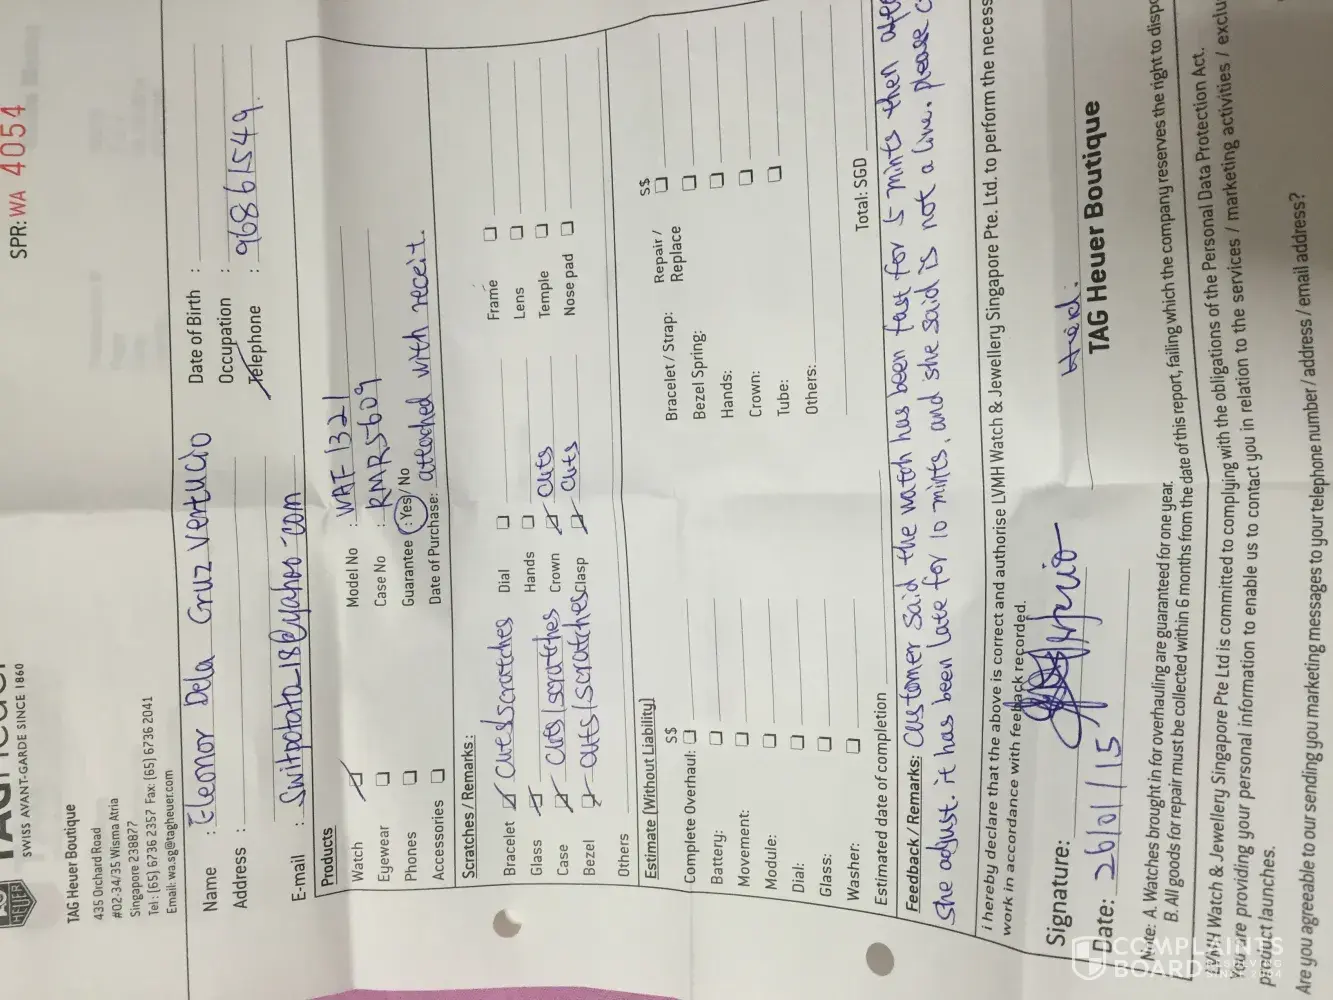 SPR: WA 4054
TAG Heuer
SWISS AVANT-GARDE SINCE 1860
TAG Heuer Boutique
435 Orchard Road
#02-34/35 Wisma Atria
Singapore 238877
Tel: (65) 6736 2357 Fax: (65) 6736 2041
Email: wa.sg@tagheuer.com
Name : Eleonor Dela Cruz Vertucio
Date of Birth :
Address :
Occupation :
Telephone : 96861549.
E-mail : Switpotato_18@yahoo.com
Products
Watch
Model No : WAF 1321
Eyewear
Case No : RMR5609
Phones
Guarantee : Yes / No
Accessories
Date of Purchase: attached with receit.
Scratches / Remarks :
Bracelet cuts/scratches Dial Frame
Glass Hands Lens
Case cuts/scratches Crown cuts Temple
Bezel cuts/scratches Clasp cuts Nose pad
Others
Estimate (Without Liability)
S$ Repair / Replace S$
Complete Overhaul: Bracelet / Strap:
Battery: Bezel Spring:
Movement: Hands:
Module: Crown:
Dial: Tube:
Glass: Others:
Washer:
Estimated date of completion Total: SGD
Feedback / Remarks: Customer said the watch has been fast for 5 mints then
she adjust. it has been late for 10 mints, and she said is not a live. please
I hereby declare that the above is correct and authorise LVMH Watch & Jewellery Singapore Pte. Ltd. to perform the
work in accordance with feedback recorded.
Signature:
Date: 26/01/15
TAG Heuer Boutique
Note: A. Watches brought in for overhauling are guaranteed for one year.
B. All goods for repair must be collected within 6 months from the date of this report, failing which the company reserves the right to
LVMH Watch & Jewellery Singapore Pte Ltd is committed to complying with the obligations of the Personal Data Protection Act.
You are providing your personal information to enable us to contact you in relation to the services / marketing activities /
product launches.
Are you agreeable to our sending you marketing messages to your telephone number / address / email address?
COMPLAINTS
BOARD
RESOLVING
SINCE 2004